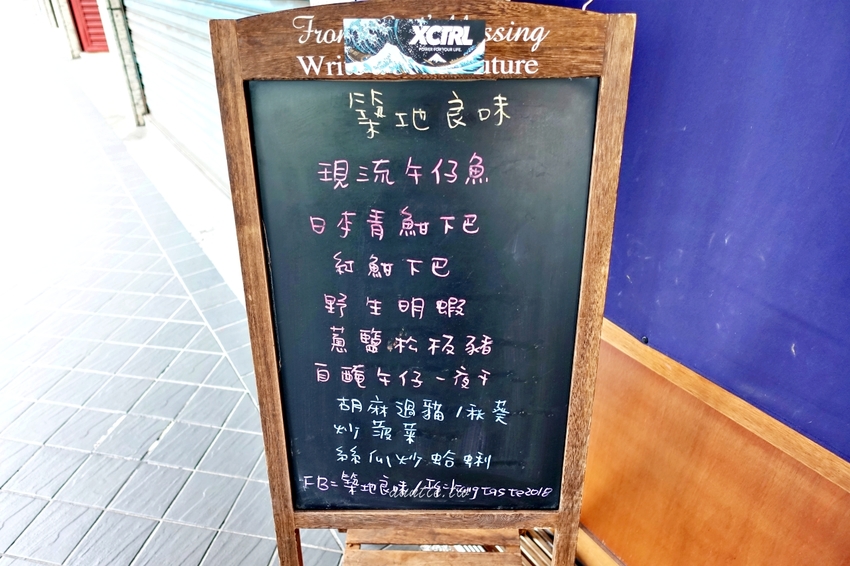 From ssing
XCTRL
POWER FOR YOUR LIFE.
Writ uture
築地良味
現流午仔魚
日本青魽下巴
紅魽下巴
野生明蝦
蔥鹽松板豬
自醃午仔一夜干
胡麻過貓/秋葵
炒菠菜
絲瓜炒蛤蜊
FB=築地良味/ taste2018